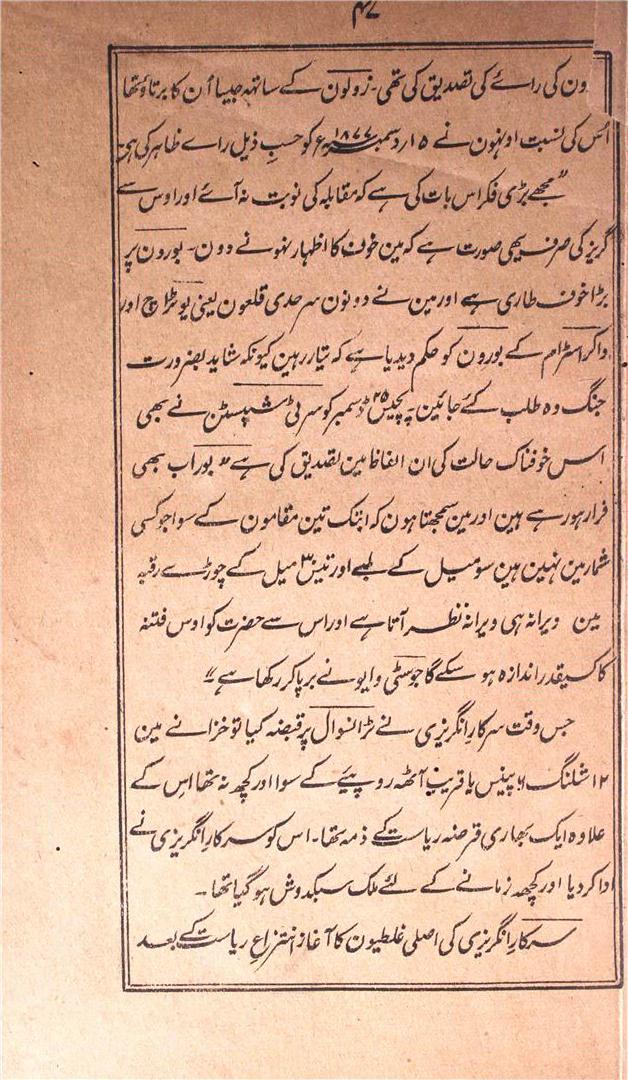 ۴۷
ون کی رائے کی تصدیق کی تھی۔ زولون کے ساتھ جیسا اُن کا برتاؤ تھا
اُس کی نسبت اونہون نے ۱۵ دسمبر ۱۸۷۷ء کو حسبِ ذیل راے ظاہر کی ہی
"مجھے بڑی فکر اس بات کی ہے کہ مقابلہ کی نوبت نہ آئے اور اوس سے
گریز کی صرف یہی صورت ہے کہ مین خوف کا اظہار نہونے دون۔ بورون پر
بڑا خوف طاری ہے اور مین نے دونون سرحدی قلعون یعنی یوٹراچ اور
واکراسٹرام کے بورون کو حکم دیدیا ہے کہ تیار رہین کیونکہ شاید بضرورت
جنگ وہ طلب کئے جائین پچیس ۲۵ ڈسمبر کو سر ٹی شیپسٹن نے بھی
اس خوفناک حالت کی ان الفاظ مین تصدیق کی ہے "بور اب بھی
فرار ہو رہے ہین اور مین سمجھتا ہون کہ ابتک تین مقامون کے سوا جو کسی
شمار مین نہین ہین سو میل کے لمبے اور تیس ۳۰ میل کے چوڑے رقبہ
مین ویرانہ ہی ویرانہ نظر آتا ہے اور اس سے حضرت کو اوس فتنہ
کا کسیقدر اندازہ ہو سکے گا جو سٹی وایو نے برپا کر رکھا ہے"
جس وقت سرکار انگریزی نے ٹرانسوال پر قبضہ کیا تو خزانے مین
۱۲ شلنگ ۶ پینس یا قریب آٹھ روپیئے کے سوا اور کچھ نہ تھا اس کے
علاوہ ایک بھاری قرضہ ریاست کے ذمہ تھا۔ اس کو سرکار انگریزی نے
ادا کر دیا اور کچھ زمانے کے لئے ملک سبکدوش ہو گیا تھا۔
سرکار انگریزی کی اصلی غلطیون کا آغاز انتزاعِ ریاست کے بعد